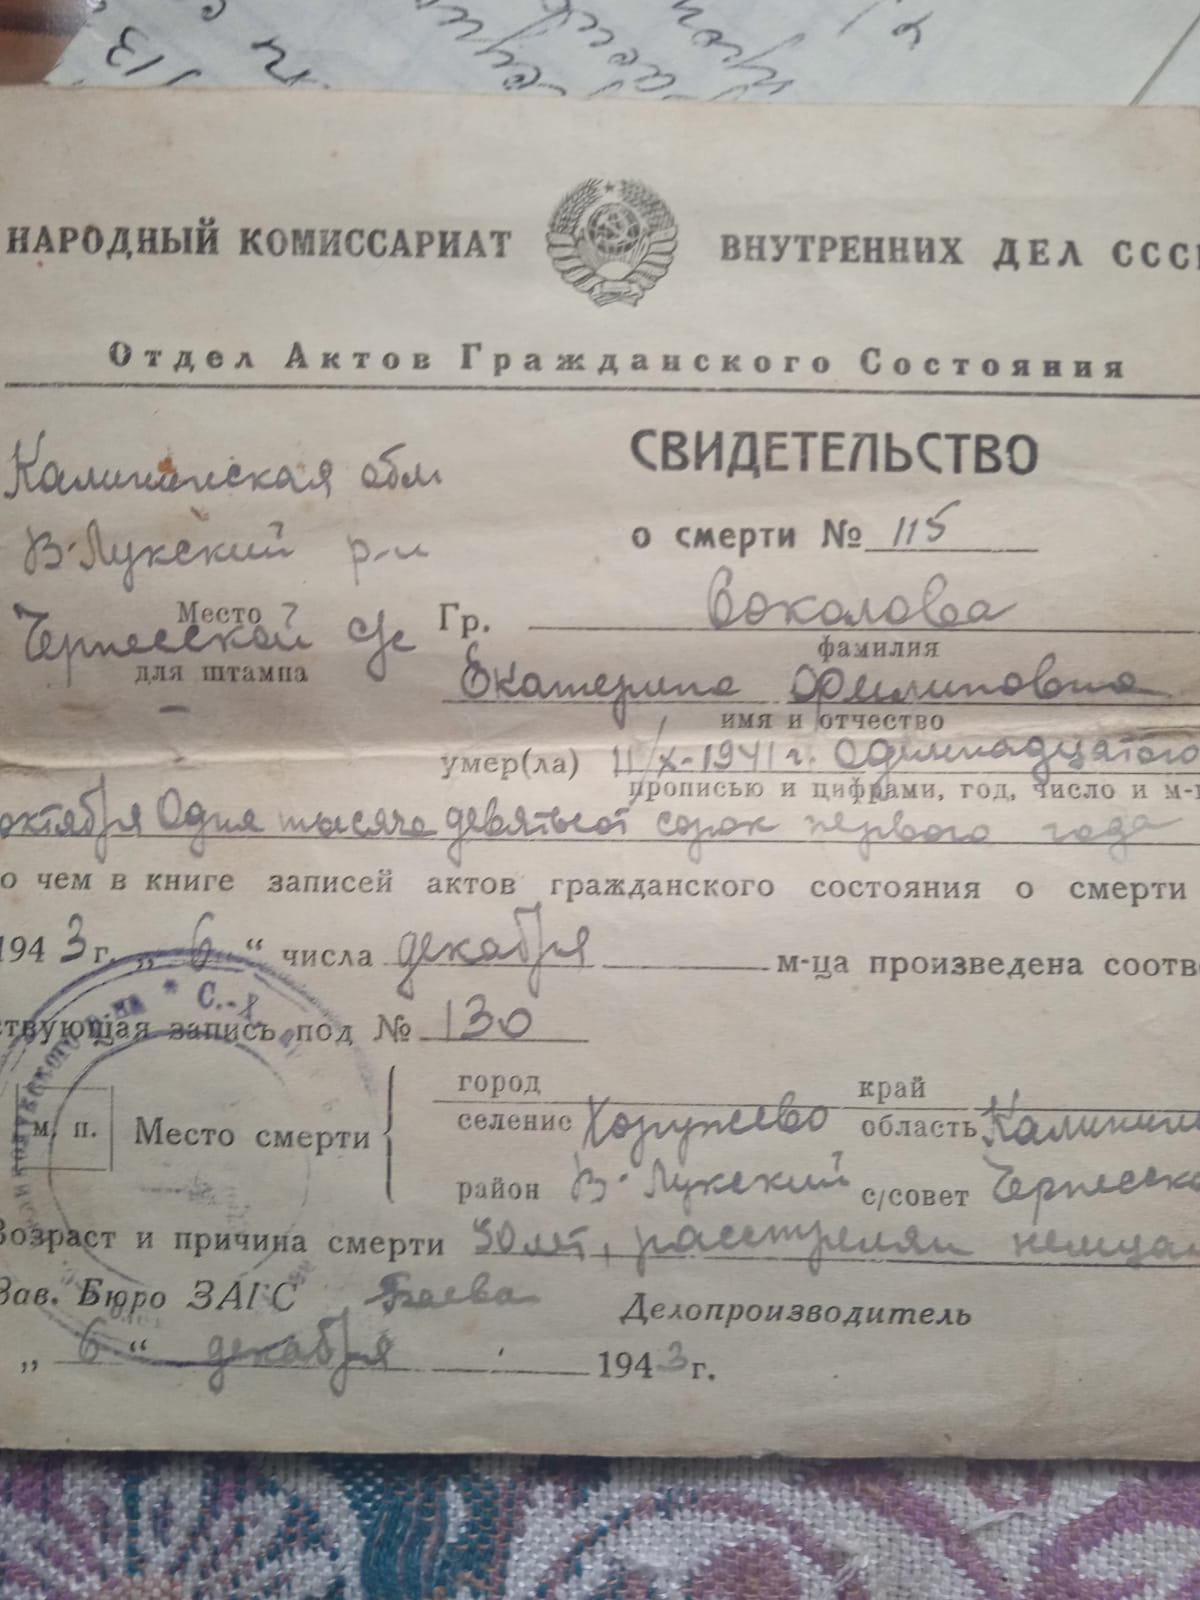 НАРОДНЫЙ КОМИССАРИАТ ВНУТРЕННИХ ДЕЛ СССР
Отдел Актов Гражданского Состояния
Калининская обл
В-Лукский р-н
СВИДЕТЕЛЬСТВО
о смерти № 115
Место
для штампа
с/с
Гр. Соколова
фамилия
Екатерина Филиповна
имя и отчество
умер(ла) 11/X-1941 г. Одиннадцатого
прописью и цифрами, год, число и м-ц
октября Одна тысяча девятьсот сорок первого года
о чем в книге записей актов гражданского состояния о смерти
1943 г. „ 6 “ числа декабря м-ца произведена соотве
тствующая запись под № 130
м. п.
Место смерти
город
селение Хоружево
край
область Калинин
район В-Лукский
с/совет
Возраст и причина смерти 50 лет, расстрелян немцам
Зав. Бюро ЗАГС
Делопроизводитель
„ 6 “ декабря 1943 г.